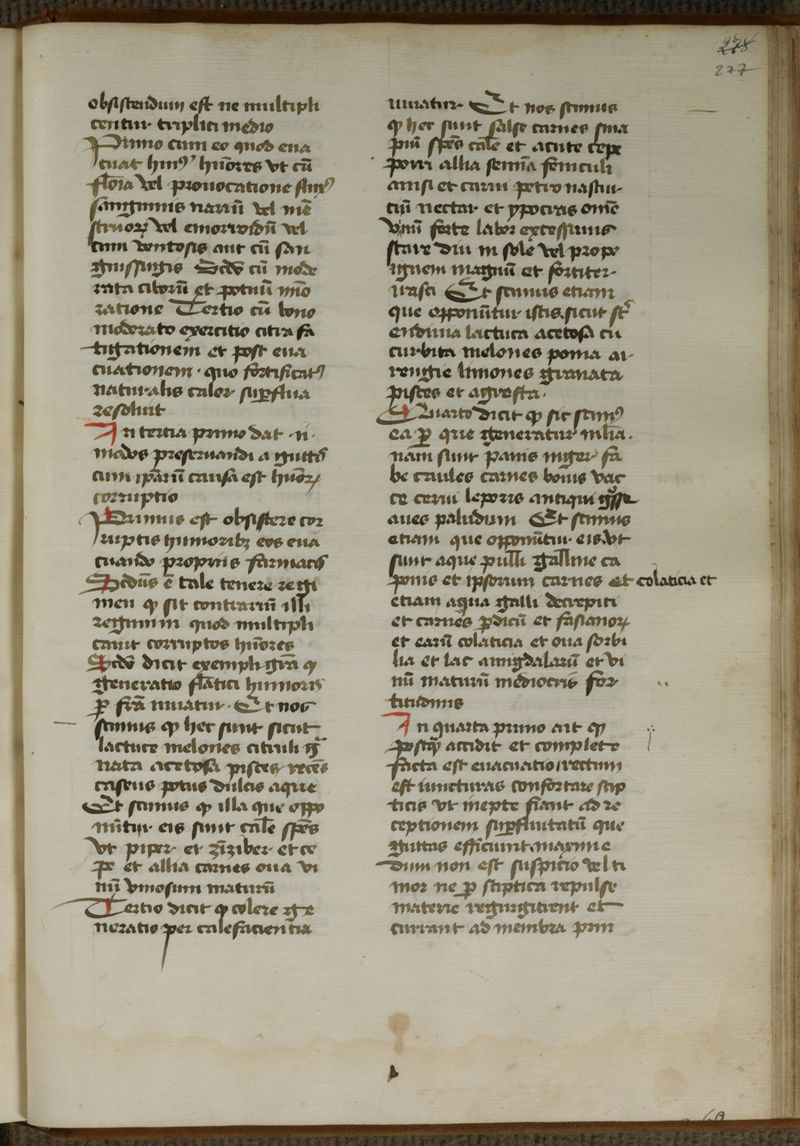 278
277
obsistendum est ne multipli
centur triplici medio
Primo cum eo quod eua
cuat humores vt cū
flōia vel prouocatione
sanguinis nariū vel mē
struorum vel emorroidū vel
cum ventosis aut cū san
guissugis Scdō cū mode
rata ciborū et potuū
ratione Tertio cū bono
moderato exercitio citra fa
tigationem et post eua
cuationem · quo fortificatꝰ
naturalis calor suꝑflua
resoluit
In tertia primo dat · n ·
modos preseruandi a guttis
cum causa est
corruptio
Primus est obsistere cor
ruptis humoribꝫ eos eua
cuando propriis farmacis
Scdus ē tale tenere regi
men ꝙ sit contrariū illi
regimini quod multipli
cant corruptos hūores
Scdō dicit exempli grā ꝙ
generatio flātici humoris
ꝑ frā iuuatur · Et nos
scimus ꝙ hec sunt sicut
lactuce melones citruli
nata acetosa pisces recēs
caseus potus dulcis aque
Et scimus ꝙ illa que oppo
nūtur eis sunt cale spēs
vt piper · et zīziber · et ce
pe et allia carnes oua vi
nū vinosum maturū
Tertio dicit ꝙ colere ge
neratio per calefacientia
iuuatur · Et nos scimus
ꝙ hec sunt salse carnes
spēs cale et acute cepe
porri allia femīa feniculi
anisi et carui petro nastur
ciū nectar · et ypocras omē
vinū forte labor excessiuus
stare diu in sole vel prope
ignem magnū et fortiter
irasci Et scimus etiam
que opponūtur istis sicut
endiuia lactuca acetosa cu
curbita melones poma ar
rengie limones granata
pisces et agresta ·
Quarto dicit ꝙ sit scimꝰ
ea ꝑ que generatur mlīa ·
nam sunt panis niger fa
be caules carnes bouis vac
ce cerui leporis antiqui
aues paludum Et scimus
etiam que opponūtur eis vt
sunt aque pulli galline ca
ponis et ipsorum carnes et colaticia et
etiam aqua galli decrepiti
et carnes ꝑdicū et fasianorum
et earū colaticia et oua sorbi
lia et lac amigdalarū et vi
nū maturū mediocris for
titudinis
In quarta primo ait ꝙ
postꝙ accidit et complete
facta est euacuatio rectum
est iuncturas confortare stip
ticis vt inepte fiant ad re
ceptionem suꝑfluitatū que
guttas efficiunt maxime
dum non est suspicio vel ti
mor ne ꝑ stiptica repulse
materie regurgitent et
currant ad membra prin